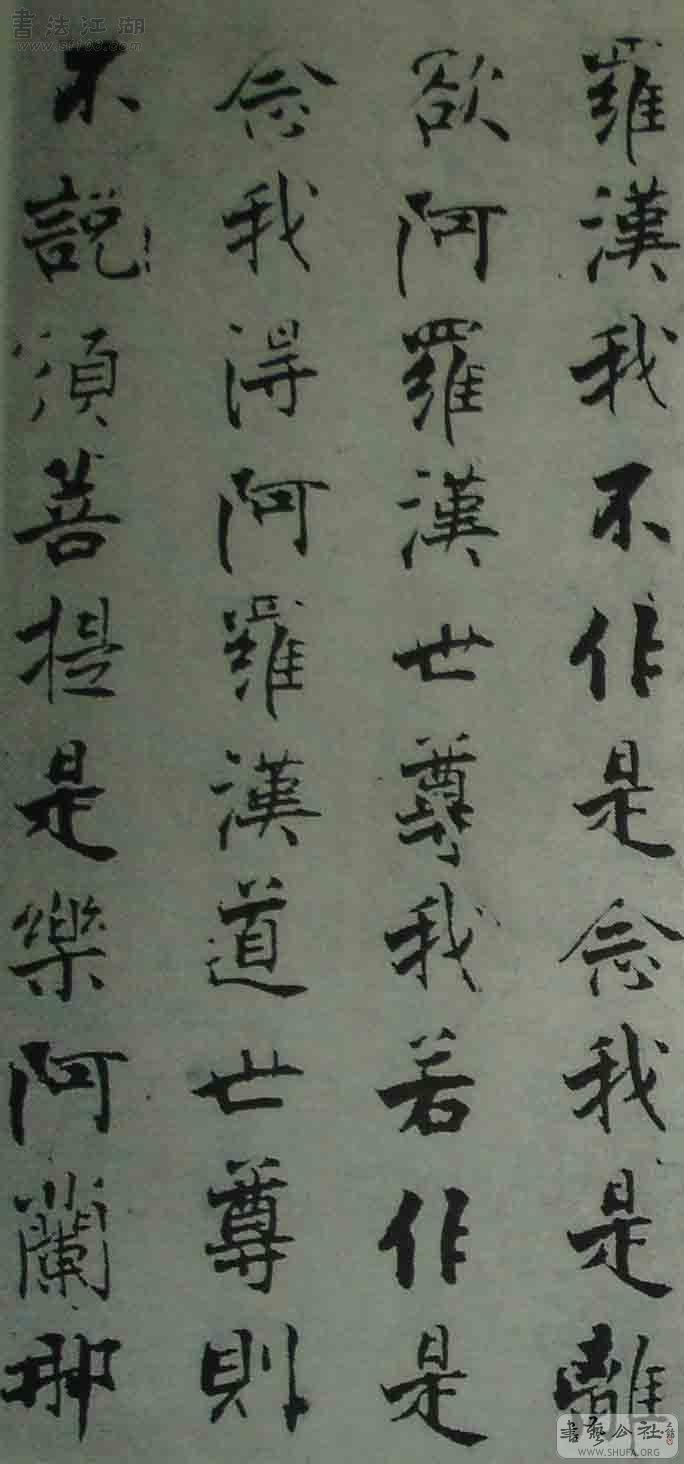 羅漢我不作是念我是離
欲阿羅漢世尊我若作是
念我得阿羅漢道世尊則
不說須菩提是樂阿蘭那
書法江湖
www.sf108.com
書藝公社
WWW.SHUFA.ORG